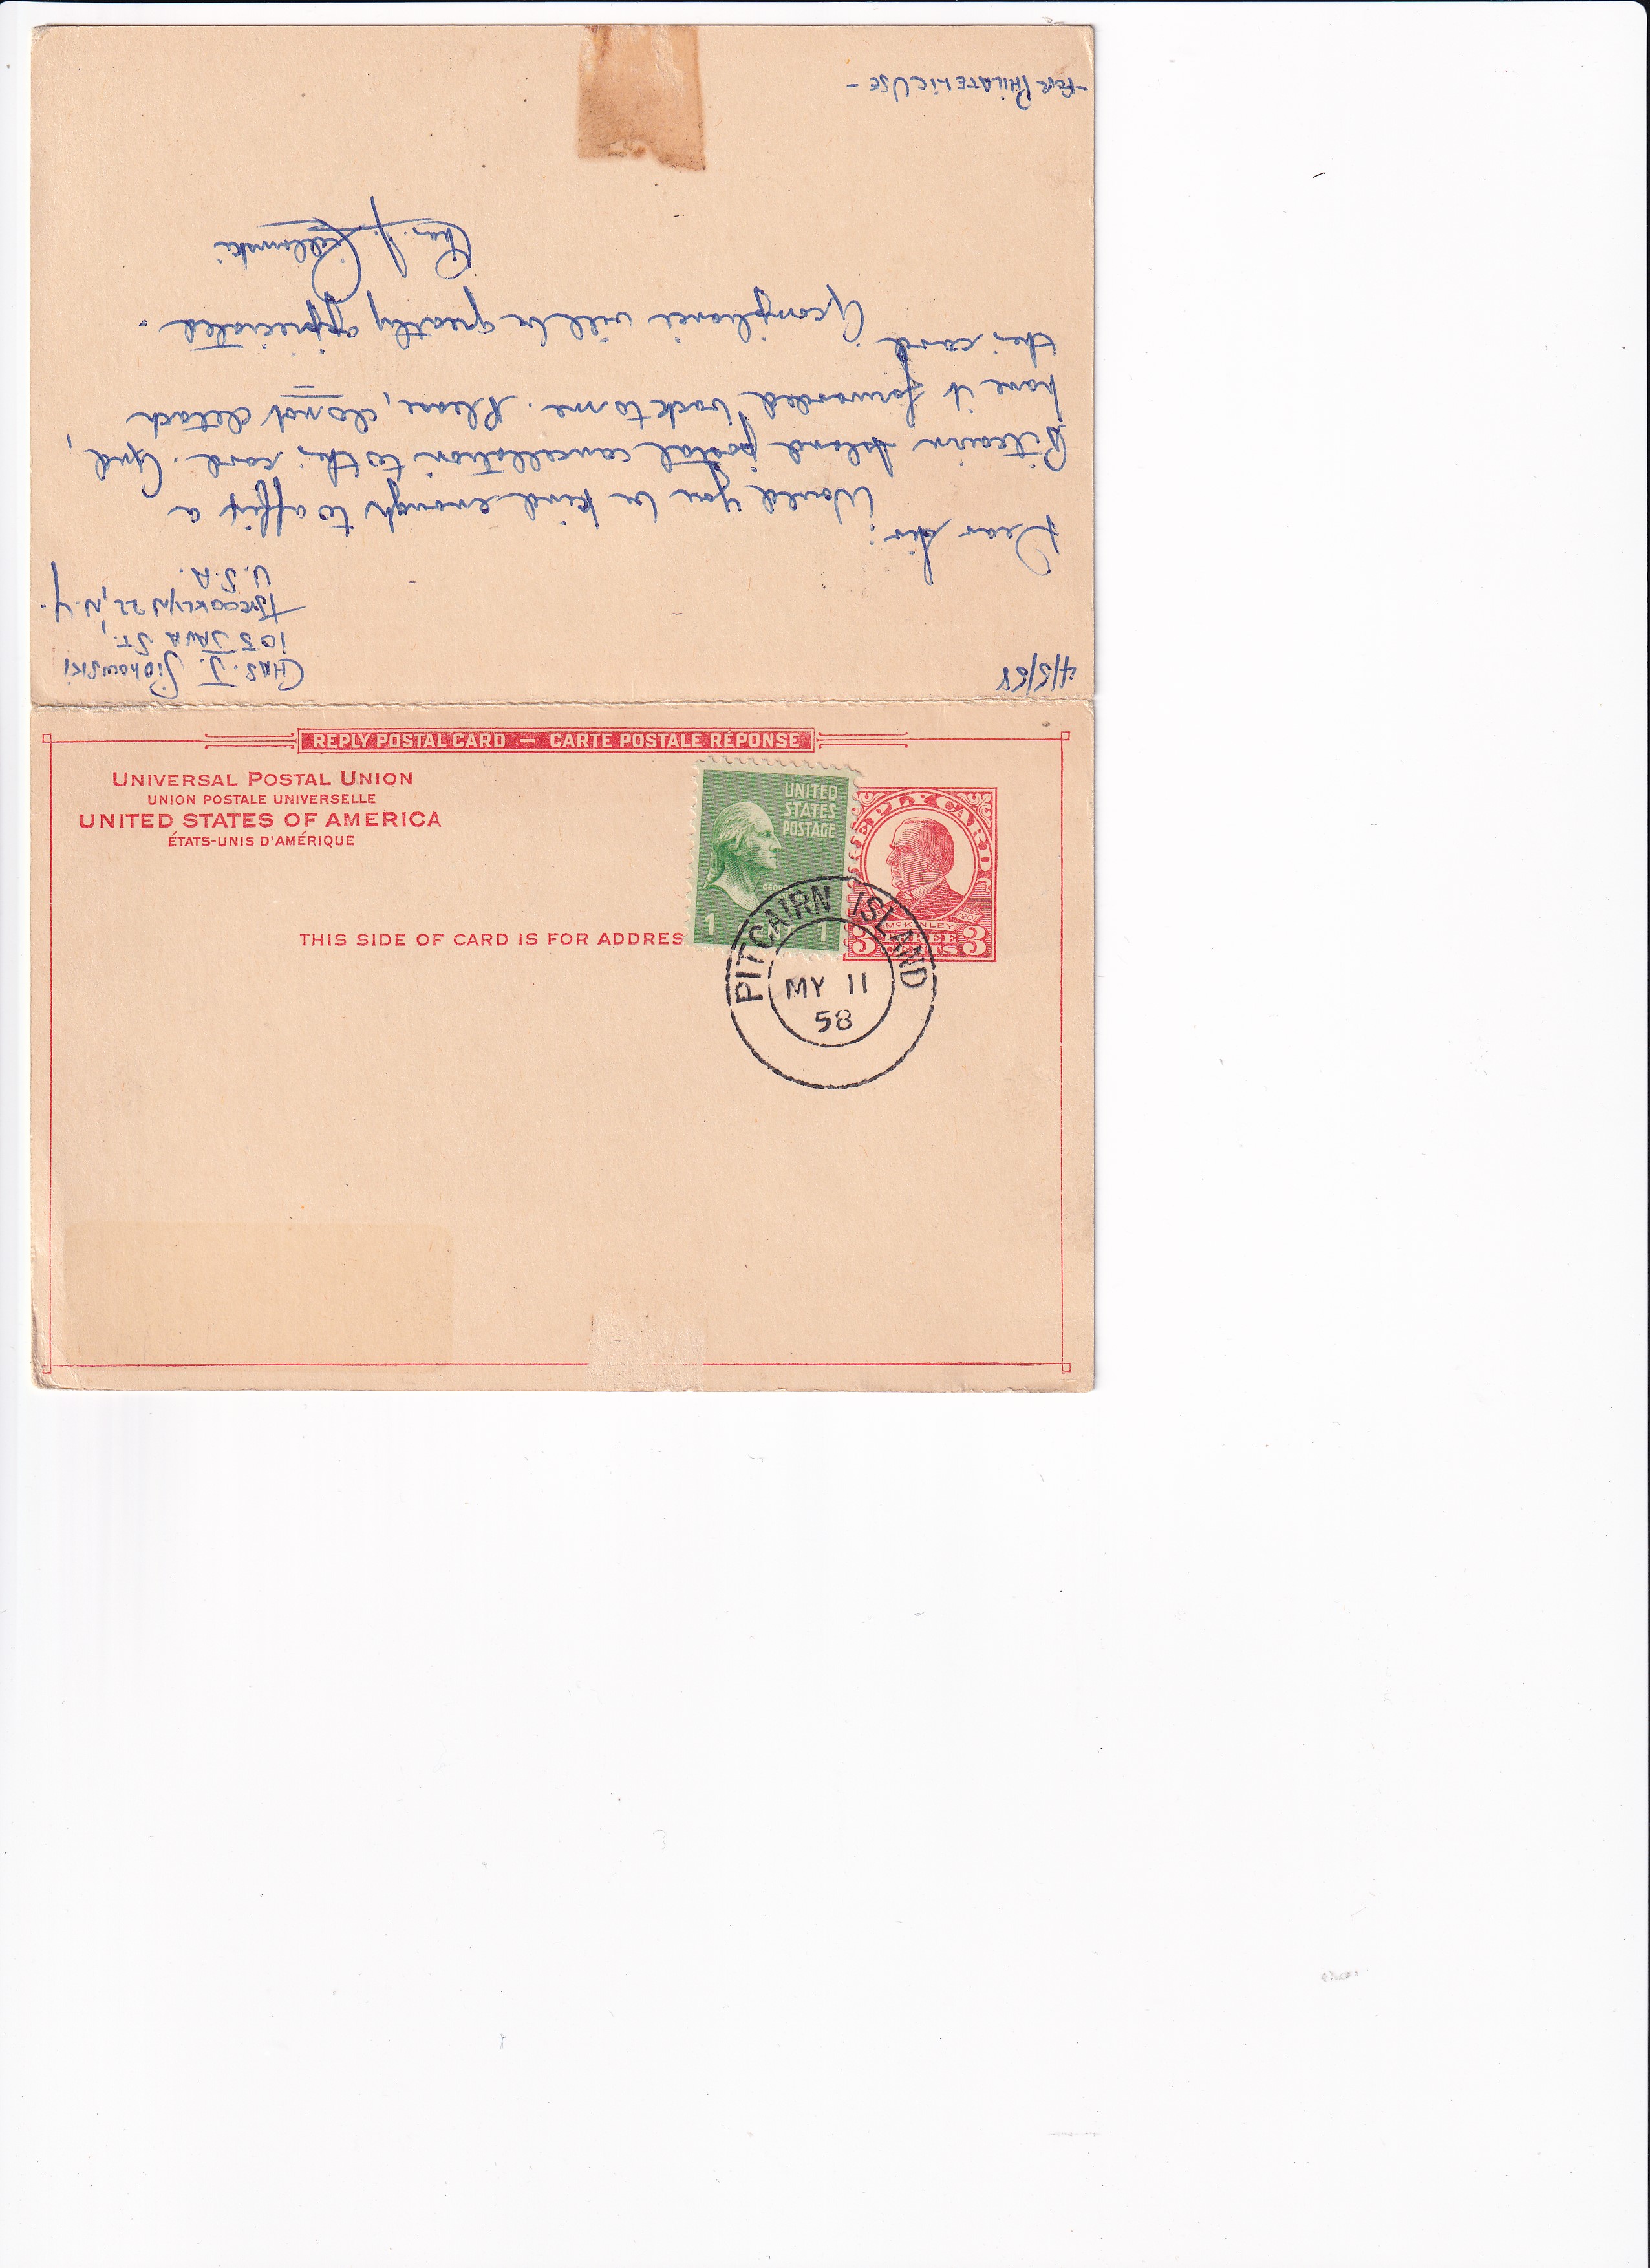 4/5/58
CHAS. J. ZIOLKOWSKI
105 JAVA ST.,
BROOKLYN 22, N.Y.
U.S.A.
Dear Sir:
Would you be kind enough to affix a
Pitcairn Island postal cancellation to this card. And,
have it forwarded back to me. Please, do not detach
this card.
A compliance will be greatly appreciated.
Chas. J.
- FOR PHILATELIC USE -
REPLY POSTAL CARD — CARTE POSTALE RÉPONSE
UNIVERSAL POSTAL UNION
UNION POSTALE UNIVERSELLE
UNITED STATES OF AMERICA
ÉTATS-UNIS D'AMÉRIQUE
THIS SIDE OF CARD IS FOR ADDRES
UNITED
STATES
POSTAGE
GEOR
1 1
McKINLEY
3 THREE 3
CENTS
PITCAIRN ISLAND
MY 11
58